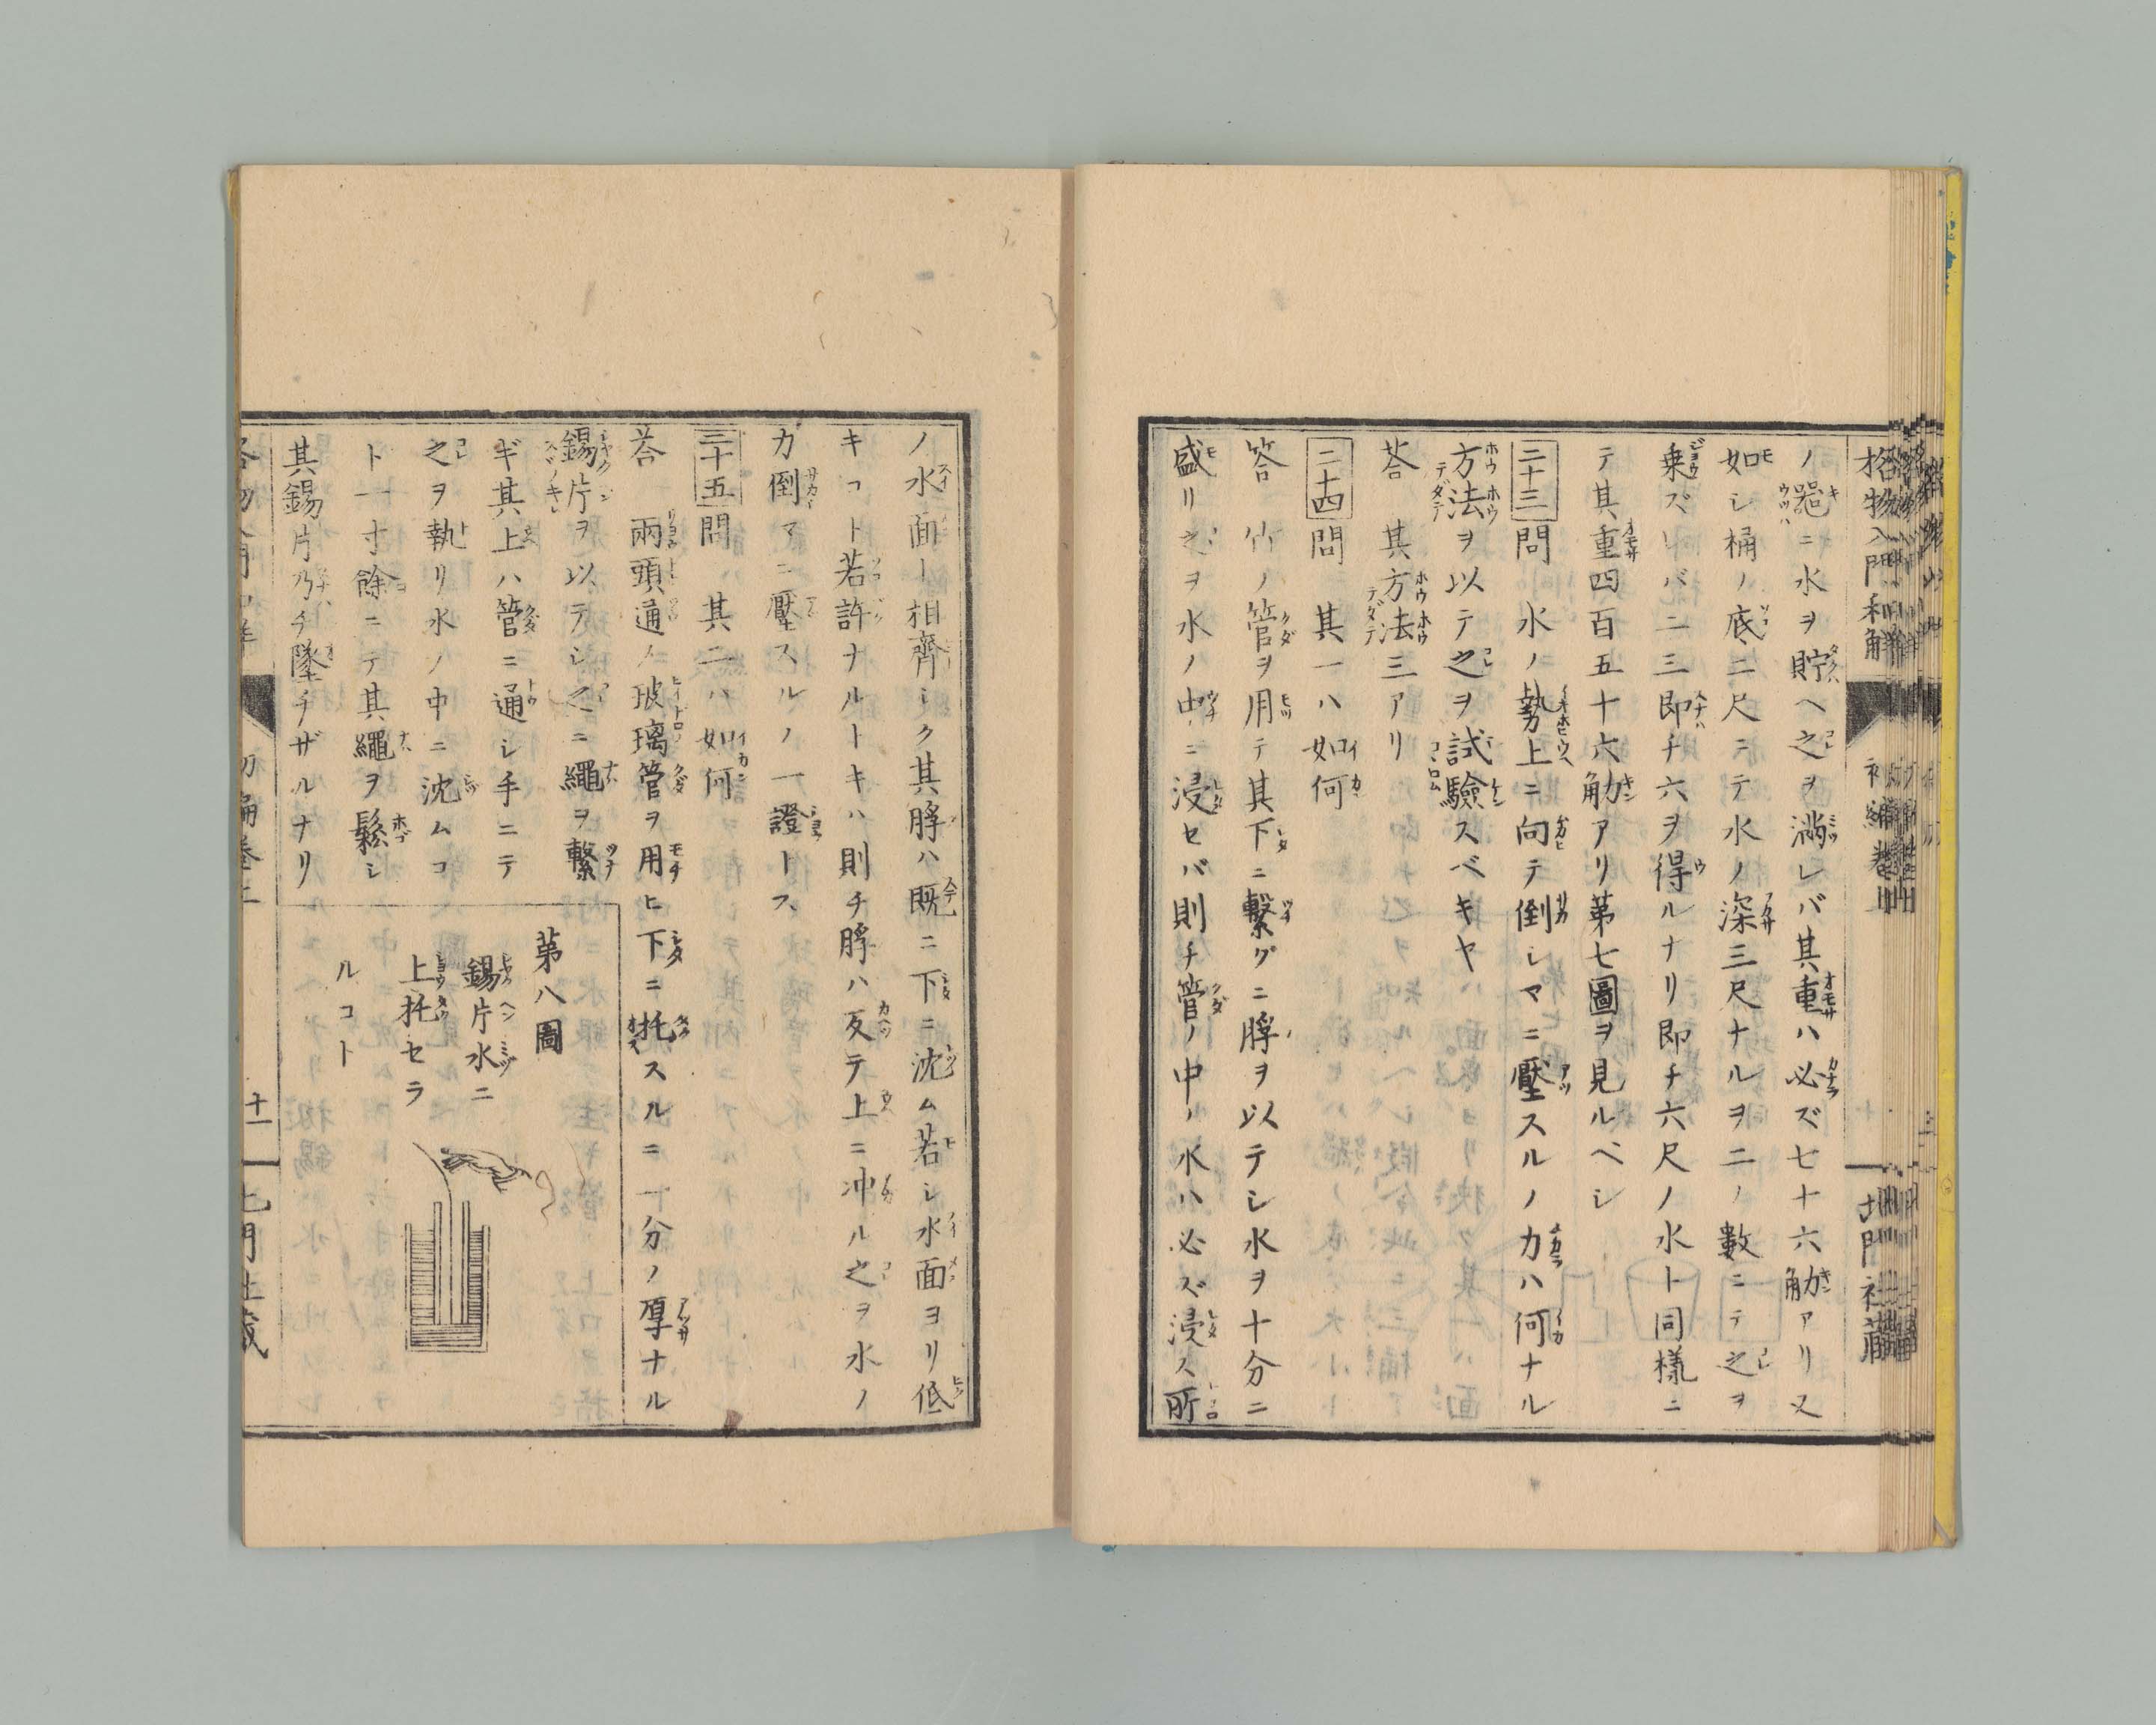 格物入門和解
初編卷
北門社藏
ノ器ニ水ヲ貯ヘ之ヲ滿レバ其重ハ必ズ七十六觔アリ又
如シ桶ノ底二尺ニテ水ノ深三尺ナルヲ二ノ數ニテ之ヲ
乗ズレバ二三即チ六ヲ得ルナリ即チ六尺ノ水ト同樣ニ
テ其重四百五十六觔アリ第七圖ヲ見ルベシ
二十三問 水ノ勢上ニ向テ倒シマニ壓スルノ力ハ何ナル
方法ヲ以テ之ヲ試驗スベキヤ
荅 其方法三アリ
二十四問 其一ハ如何
答 竹ノ管ヲ用テ其下ニ繋グニ脬ヲ以テシ水ヲ十分ニ
盛リ之ヲ水ノ中ニ浸セバ則チ管ノ中ノ水ハ必ズ浸ス所
ノ水面ト相齊シク其脬ハ既ニ下ニ沈ム若シ水面ヨリ低
キコト若許ナルトキハ則チ脬ハ反テ上ニ冲ル之ヲ水ノ
力倒マニ壓スルノ一證トス
二十五問 其二ハ如何
荅 兩頭通ノ玻璃管ヲ用ヒ下ニ托スルニ一分ノ厚ナル
錫片ヲ以テシ之ニ繩ヲ繋
ギ其上ハ管ニ通シ手ニテ
之ヲ執リ水ノ中ニ沈ムコ
ト一寸餘ニテ其繩ヲ鬆シ
其錫片乃チ墜チザルナリ
第八圖
錫片水ニ
上托セラ
ルコト
十一